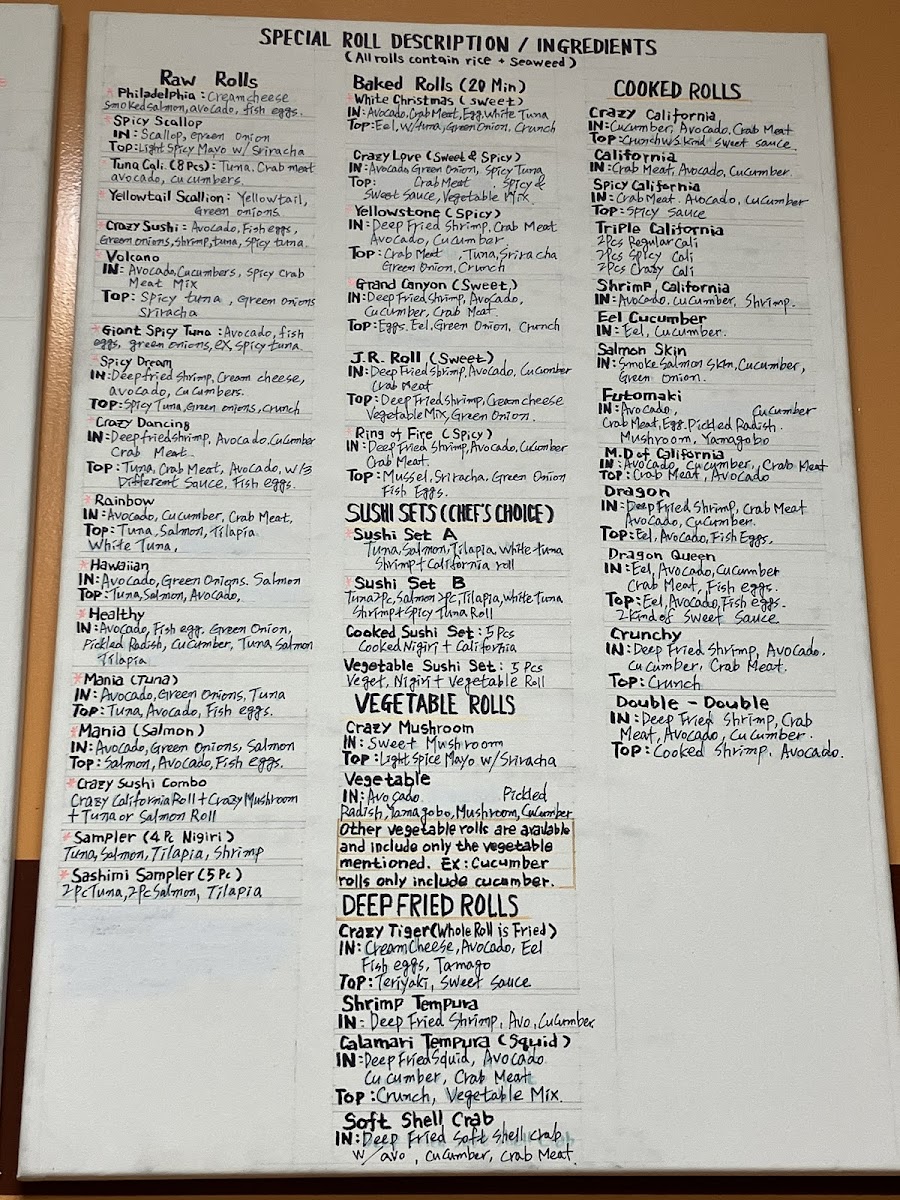 SPECIAL ROLL DESCRIPTION / INGREDIENTS
(All rolls contain rice + Seaweed)
Raw Rolls
* Philadelphia : Creamcheese
Smoked salmon, avocado, fish eggs.
* Spicy Scallop
IN: Scallop, green onion
Top: Light Spicy Mayo w/ Sriracha
* Tuna Cali. (8 Pcs): Tuna. Crab meat
avocado, cucumbers.
* Yellowtail Scallion: Yellowtail,
Green onions
* Crazy Sushi: Avocado, Fish eggs,
Green onions, shrimp, tuna, spicy tuna.
* Volcano
IN: Avocado, Cucumbers, Spicy Crab
Meat Mix
Top: Spicy tuna , Green onions
Sriracha
* Giant Spicy Tuna : Avocado, fish
eggs, green onions, ex, spicy tuna
* Spicy Dream
IN: Deep fried Shrimp, Cream cheese,
avocado, cucumbers.
TOP: Spicy Tuna, Green onions, crunch
* Crazy Dancing
IN: Deep fried shrimp, Avocado, Cucumber
Crab Meat.
TOP: Tuna, Crab Meat, Avocado, w/3
Different Sauce, Fish eggs.
* Rainbow
IN: Avocado, Cucumber, Crab Meat,
Top: Tuna, Salmon, Tilapia
White Tuna,
* Hawaiian
IN: Avocado, Green Onions. Salmon
Top: Tuna, Salmon, Avocado,
* Healthy
IN: Avocado, Fish egg. Green Onion,
Pickled Radish, Cucumber, Tuna, Salmon
Tilapia
* Mania (Tuna)
IN: Avocado, Green Onions, Tuna
Top: Tuna, Avocado, Fish eggs.
* Mania (Salmon)
IN: Avocado, Green Onions, Salmon
Top: Salmon, Avocado, Fish eggs.
* Crazy Sushi Combo
Crazy California Roll + Crazy Mushroom
+ Tuna or Salmon Roll
* Sampler (4 Pc Nigiri)
Tuna, Salmon, Tilapia, Shrimp
* Sashimi Sampler (5 Pc)
2 Pc Tuna, 2 Pc Salmon, Tilapia
Baked Rolls (20 Min)
* White Christmas (Sweet)
IN: Avocado, Crab Meat, Egg, White Tuna
Top: Eel, W/tuna, Green Onion, Crunch
Crazy Love (Sweet & Spicy)
IN: Avocado, Green Onion, Spicy Tuna
Top: Crab Meat , Spicy &
Sweet Sauce, Vegetable Mix.
* Yellowstone (Spicy)
IN: Deep Fried Shrimp, Crab Meat
Avocado, Cucumber.
Top: Crab Meat , Tuna, Sriracha
Green Onion, Crunch
* Grand Canyon (Sweet)
IN: Deep Fried Shrimp, Avocado,
Cucumber, Crab Meat.
Top: Eggs, Eel, Green Onion, Crunch
J.R. Roll (Sweet)
IN: Deep Fried Shrimp, Avocado, Cucumber
Crab Meat
Top: Deep Fried Shrimp, Cream cheese
Vegetable Mix, Green Onion.
* Ring of Fire (Spicy)
IN: Deep Fried Shrimp, Avocado, Cucumber
Crab Meat.
Top: Mussel, Sriracha, Green Onion
Fish Eggs.
SUSHI SETS (CHEF'S CHOICE)
* Sushi Set A
Tuna, Salmon, Tilapia, White tuna
Shrimp + California roll
* Sushi Set B
Tuna 2Pc, Salmon 2Pc, Tilapia, White Tuna
Shrimp + Spicy Tuna Roll
Cooked Sushi Set: 5 Pcs
Cooked Nigiri + California
Vegetable Sushi Set: 5 Pcs
Veget, Nigiri + Vegetable Roll
VEGETABLE ROLLS
Crazy Mushroom
IN: Sweet Mushroom
Top: Light Spice Mayo w/Sriracha
Vegetable
IN: Avocado. Pickled
Radish, Yamagobo, Mushroom, Cucumber
Other vegetable rolls are available
and include only the vegetable
mentioned. EX: Cucumber
rolls only include cucumber.
DEEP FRIED ROLLS
Crazy Tiger (Whole Roll is Fried)
IN: Cream Cheese, Avocado, Eel
Fish eggs, Tamago
Top: Teriyaki, Sweet Sauce
Shrimp Tempura
IN: Deep Fried Shrimp, Avo, Cucumber
Calamari Tempura (Squid)
IN: Deep Fried Squid, Avocado
Cucumber, Crab Meat
Top: Crunch, Vegetable Mix.
Soft Shell Crab
IN: Deep Fried Soft shell crab
w/ avo , cucumber, Crab Meat.
COOKED ROLLS
Crazy California
IN: Cucumber, Avocado, Crab Meat
Top: Crunch w/2 Kind Sweet sauce
California
IN: Crab Meat, Avocado, Cucumber.
Spicy California
IN: Crab Meat. Avocado, Cucumber
Top: Spicy Sauce
Triple California
2Pcs Regular Cali
2Pcs Spicy Cali
2Pcs Crazy Cali
Shrimp California
IN: Avocado, Cucumber, Shrimp.
Eel Cucumber
IN: Eel, Cucumber.
Salmon Skin
IN: Smoke Salmon Skin, Cucumber,
Green Onion.
Futomaki
IN: Avocado, Cucumber
Crab Meat, Egg, Pickled Radish.
Mushroom, Yamagobo
M.D of California
IN: Avocado, Cucumber, Crab Meat
Top: Crab Meat, Avocado
Dragon
IN: Deep Fried Shrimp, Crab Meat
Avocado, Cucumber.
Top: Eel, Avocado, Fish Eggs,
Dragon Queen
IN: Eel, Avocado, Cucumber
Crab Meat, Fish eggs.
Top: Eel, Avocado, Fish eggs.
2 Kind of Sweet Sauce
Crunchy
IN: Deep Fried Shrimp, Avocado.
Cucumber, Crab Meat.
Top: Crunch
Double - Double
IN: Deep Fried Shrimp, Crab
Meat, Avocado, Cucumber.
Top: Cooked Shrimp. Avocado.